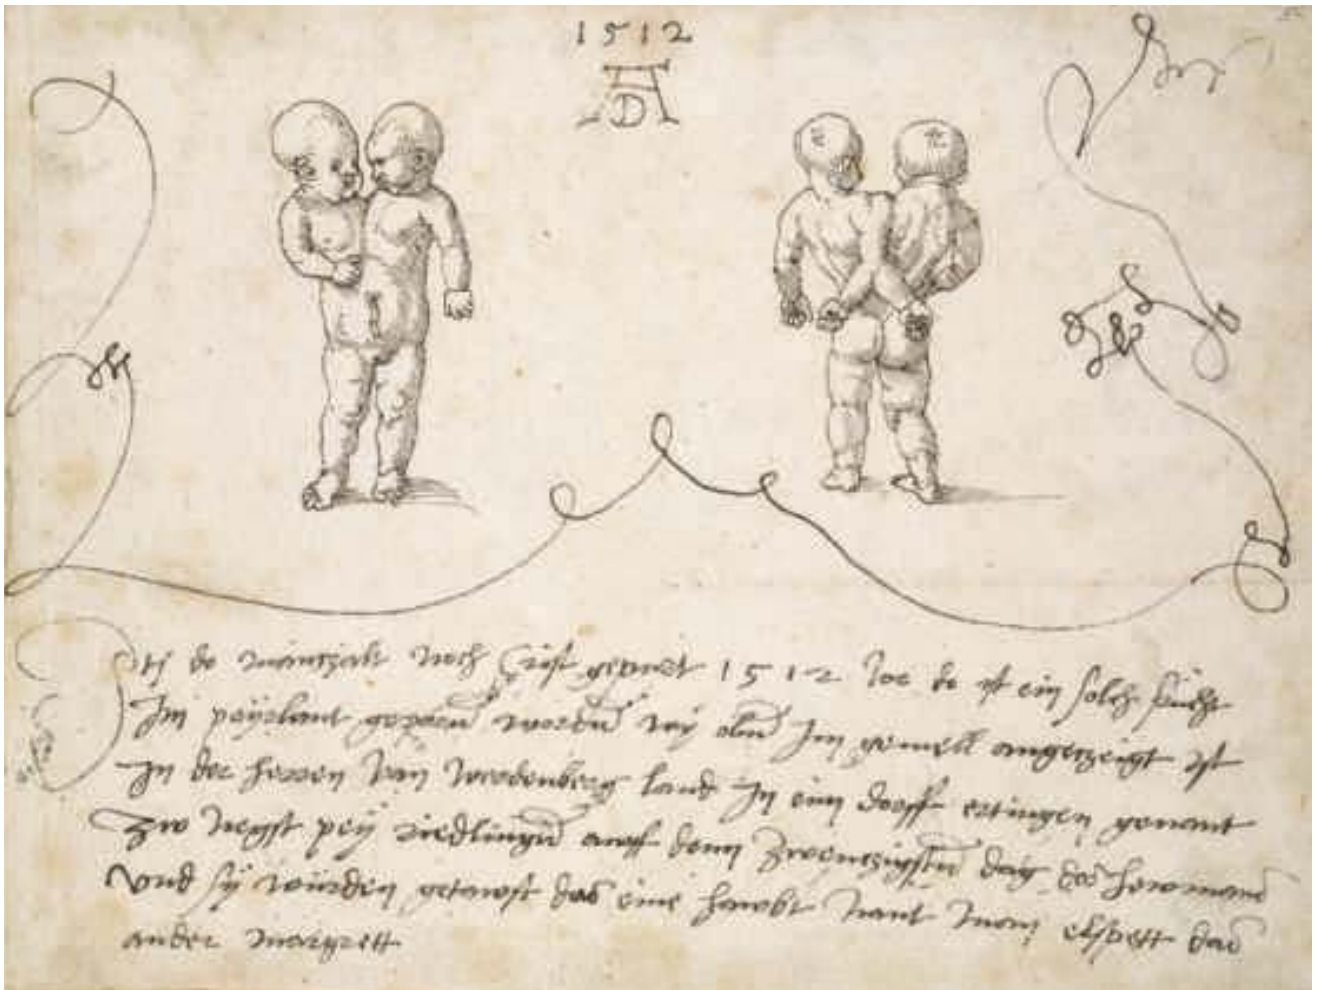 1512
AD
Itz do man tzalt noch Crist gepurt 1512 Jor do ist ein solch frücht
Im peyrlant geporn wordn wy obn Im gemell angetzeigt ist
In der herren van werdenberg land In eim dorff ertingen genant
Zw negst pey riedlingn awff denn zwentzigstn dag des hewmond
vnd sy wurden getawft das eine hawbt nant man elspett das
ander margrett